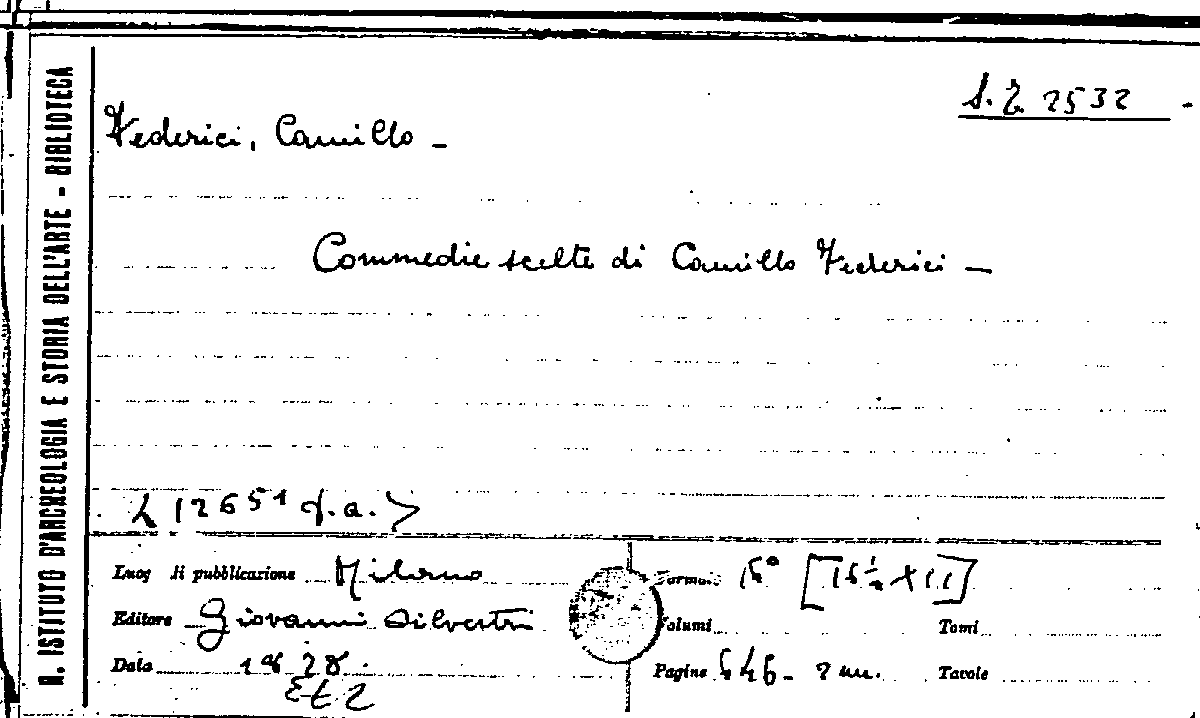 R. ISTITUTO D'ARCHEOLOGIA E STORIA DELL'ARTE - BIBLIOTECA
2532
Federici, Camillo -
Commedie scelte di Camillo Federici -
Luog di pubblicazione Milano
Formato [15½ x 11]
Editore Giovanni Silvestri
Volumi
Tomi
Data 1828.
Pagine
Tavole